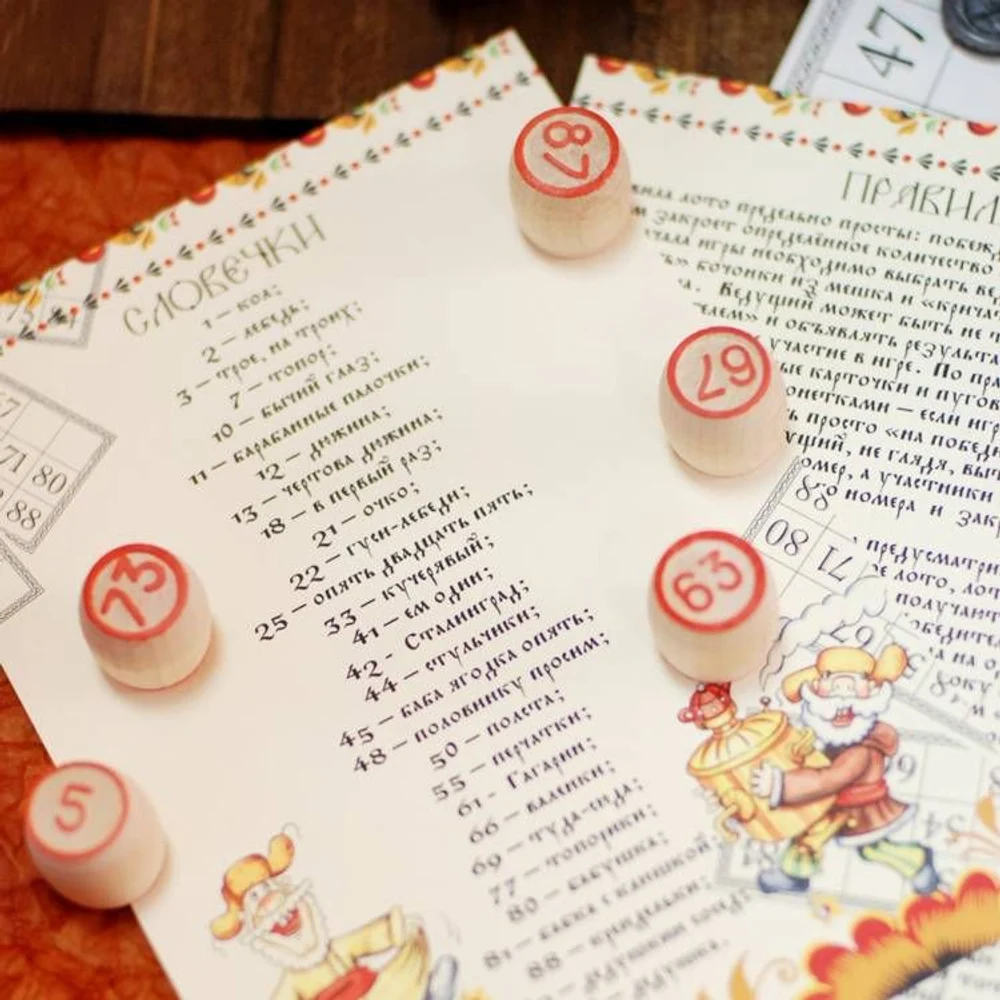 СЛОВЕЧКИ
1 – кол;
2 – лебедь;
3 – трое, на троих;
7 – топор;
10 – бычий глаз;
11 – барабанные палочки;
12 – дюжина;
13 – чертова дюжина;
18 – в первый раз;
21 – очко;
22 – гуси-лебеди;
25 – опять двадцать пять;
33 – кучерявый;
41 – ем один;
42 - Сталинград;
44 – стульчики;
45 – баба ягодка опять;
48 – половинку просим;
50 – полста;
55 – перчатки;
61 - Гагарин;
66 – валенки;
69 – туда-сюда;
77 – топорики;
80 – бабушка;
81 – бабка с клюшкой;
88 – крендельки;
ПРАВИЛ
лото предельно просты: побеж
закроет определённое количество
игры необходимо выбрать ве
бочонки из мешка и «крича
Ведущий может быть не
и объявлять результа
участие в игре. По пра
карточки и пугов
монетками – если игр
просто «на побед
не глядя, выт
номер, а участники
номера и закр
предусматри
лото, лот
получают
87
67
63
73
5
47
71 80
88
80 71